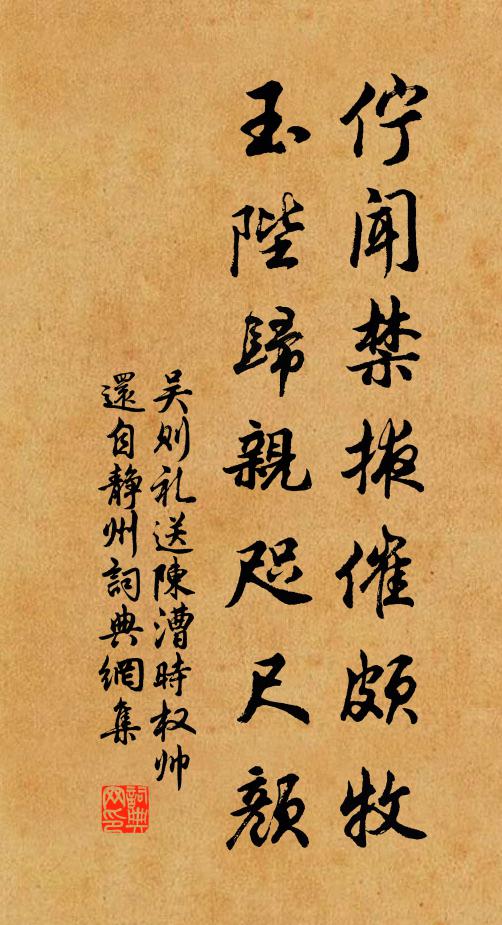 佇闻禁掖催頗牧
玉陛歸親咫尺顏
吴则礼送陳漕時权帅
還自静州詞典網集
詞典網印